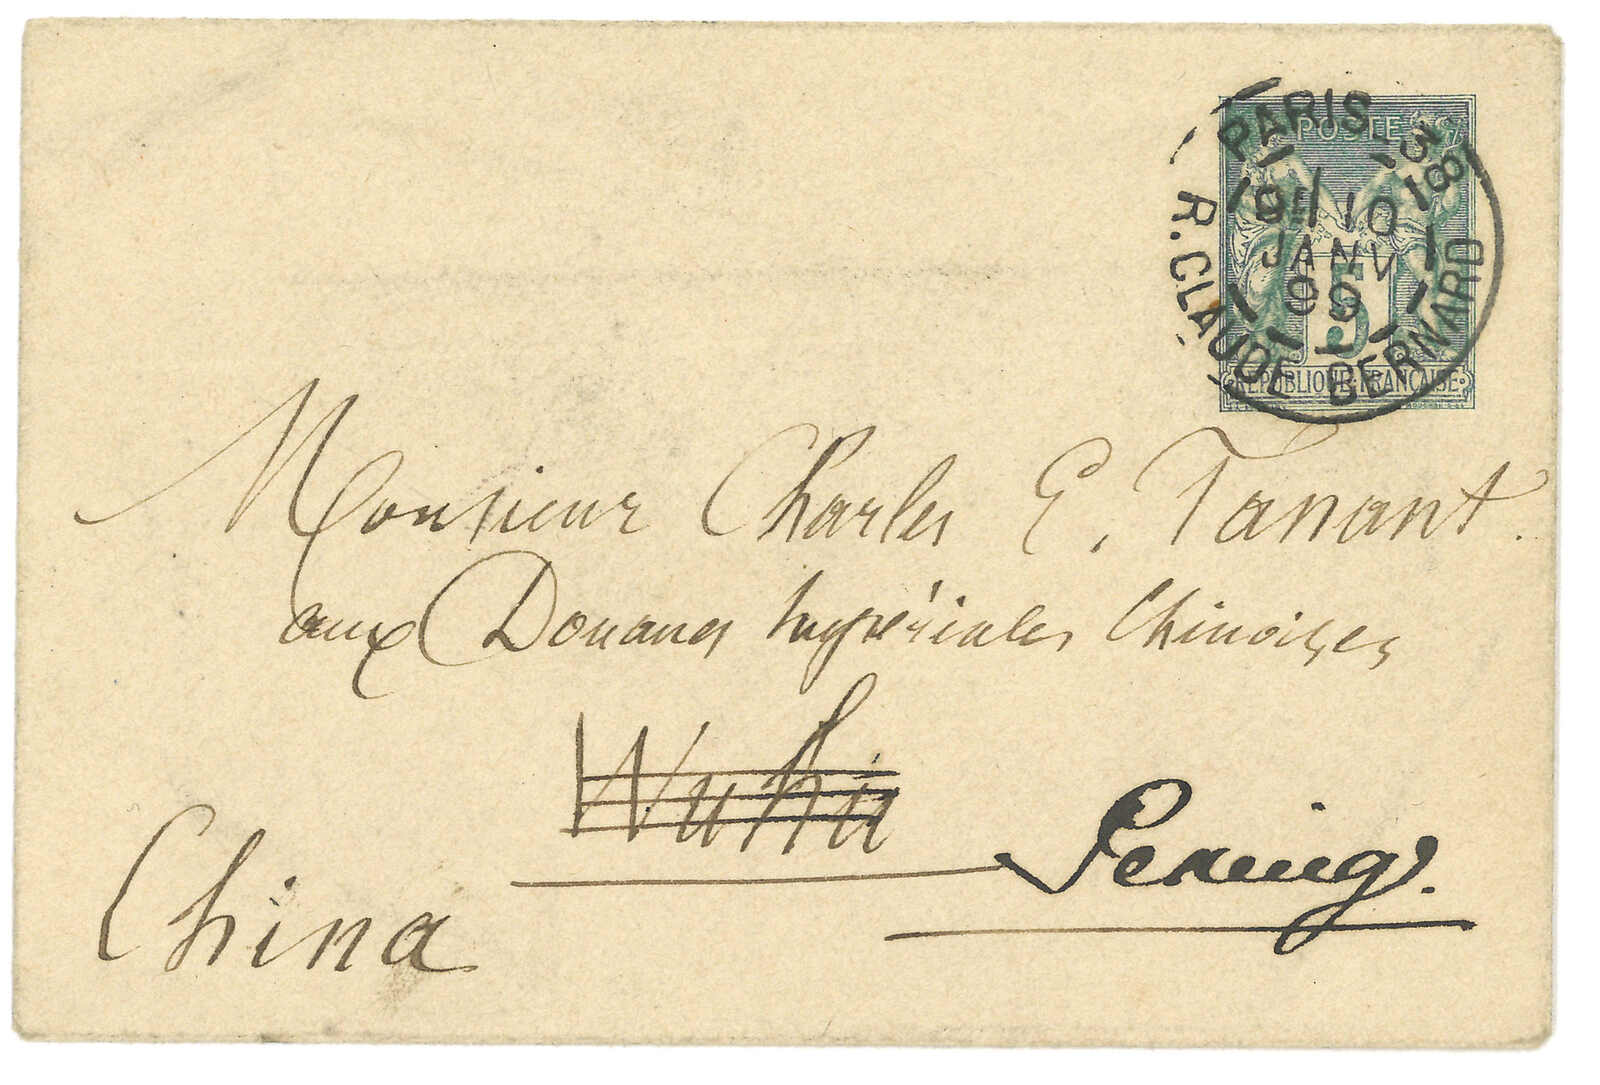 PARIS-38
POSTES
9E 10
JANV
99
5
R. CLAUDE BERNARD
REPUBLIQUE FRANCAISE
Monsieur Charles E. Tanant.
aux Douanes Impériales Chinoises
Wuhu
Peking.
China